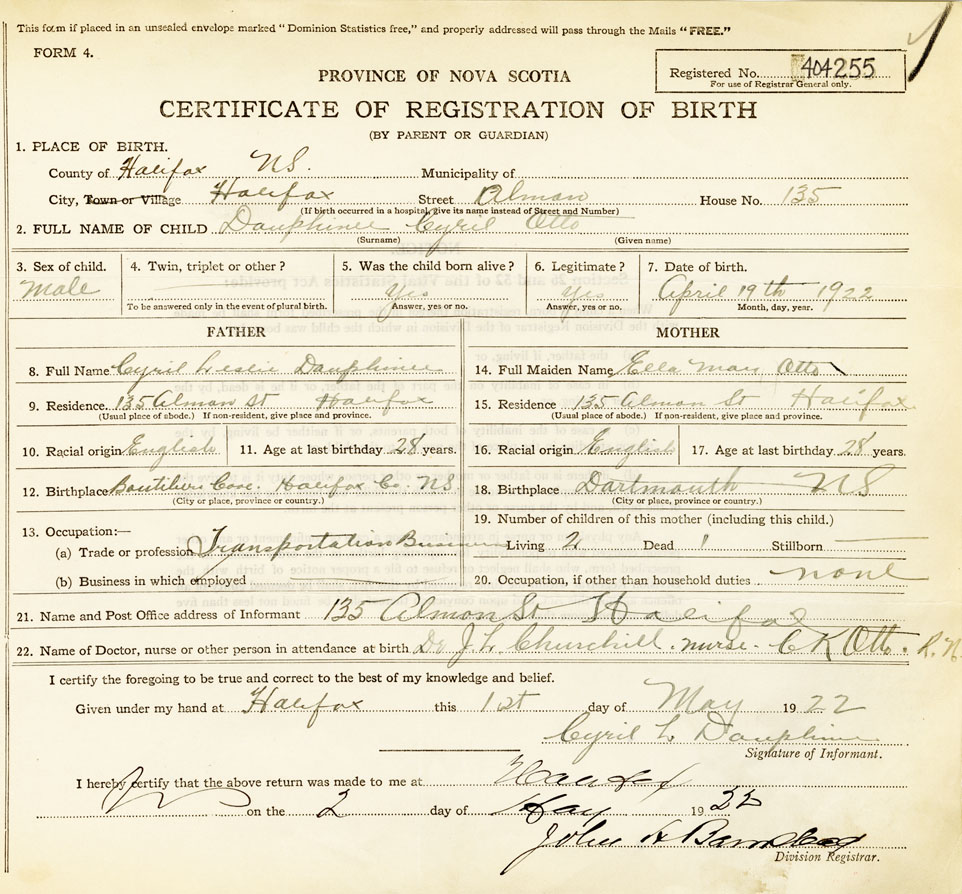 This form if placed in an unsealed envelope marked "Dominion Statistics free," and properly addressed will pass through the Mails "FREE."
FORM 4.
Registered No. 404255
For use of Registrar General only.
PROVINCE OF NOVA SCOTIA
CERTIFICATE OF REGISTRATION OF BIRTH
(BY PARENT OR GUARDIAN)
1. PLACE OF BIRTH.
County of Halifax NS. Municipality of
City, Town or Village Halifax Street Almon House No. 135
(If birth occurred in a hospital, give its name instead of Street and Number)
2. FULL NAME OF CHILD Dauphinee Cyril Otto
(Surname) (Given name)
3. Sex of child. 4. Twin, triplet or other? 5. Was the child born alive? 6. Legitimate? 7. Date of birth.
Male Yes Yes April 19th 1922
To be answered only in the event of plural birth. Answer, yes or no. Answer, yes or no. Month, day, year.
FATHER MOTHER
8. Full Name Cyril Leslie Dauphinee 14. Full Maiden Name Ella May Otto
9. Residence. 135 Almon St Halifax 15. Residence 135 Almon St Halifax
(Usual place of abode.) If non-resident, give place and province. (Usual place of abode.) If non-resident, give place and province.
10. Racial origin English 11. Age at last birthday 28 years. 16. Racial origin English 17. Age at last birthday 28 years.
12. Birthplace Boutiliers Cove. Halifax Co. NS 18. Birthplace Dartmouth NS
(City or place, province or country.) (City or place, province or country.)
13. Occupation:— 19. Number of children of this mother (including this child.)
(a) Trade or profession Transportation Business Living 2 Dead 1 Stillborn
(b) Business in which employed 20. Occupation, if other than household duties none
21. Name and Post Office address of Informant 135 Almon St Halifax
22. Name of Doctor, nurse or other person in attendance at birth Dr J. L. Churchill. nurse - C K Otto. R.N.
I certify the foregoing to be true and correct to the best of my knowledge and belief.
Given under my hand at Halifax this 1st day of May 1922
Cyril L Dauphinee
Signature of Informant.
I hereby certify that the above return was made to me at Halifax
on the 2 day of May 1922
John A
Division Registrar.